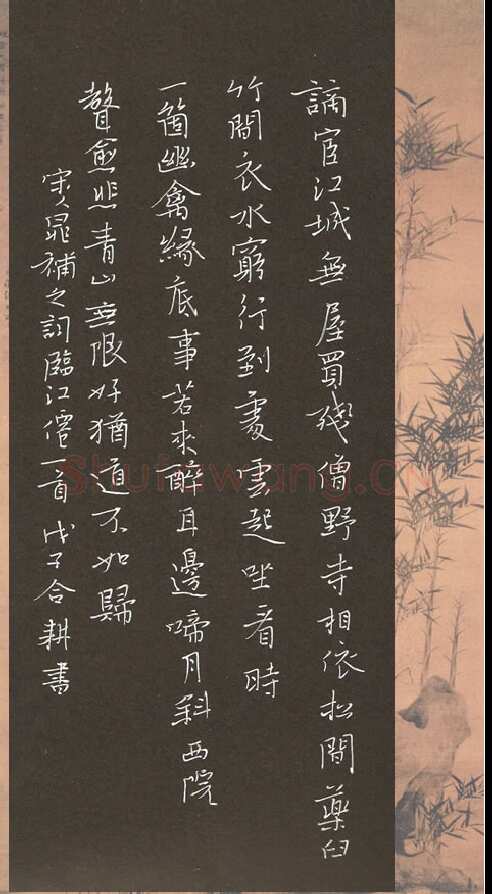 謫宦江城無屋買殘僧野寺相依松間藥臼
竹間衣水窮行到處雲起坐看時
一箇幽禽緣底事苦來醉耳邊啼月斜西院
聲愈悲青山無限好猶道不如歸
宋晁補之詞臨江僊一首 戊子合耕書
Shufawang.CN